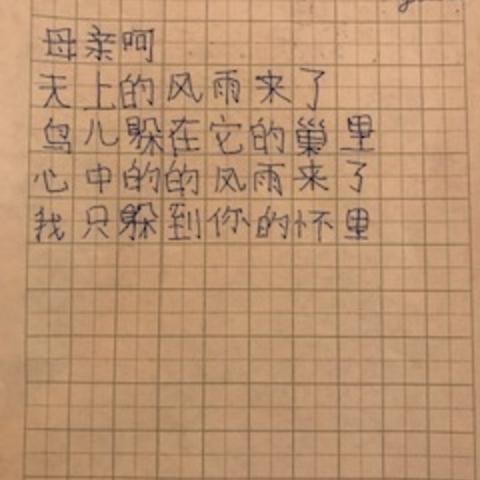 母亲呵
天上的风雨来了
鸟儿躲在它的巢里
心中的的风雨来了
我只躲到你的怀里